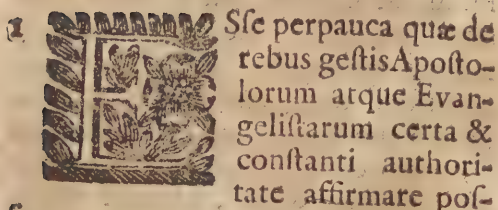 1 ESſe perpauca quæ de
rebus geſtis Apoſto-
lorum atque Evan-
geliſtarum certa &
conſtanti authori-
tate affirmare poſ-